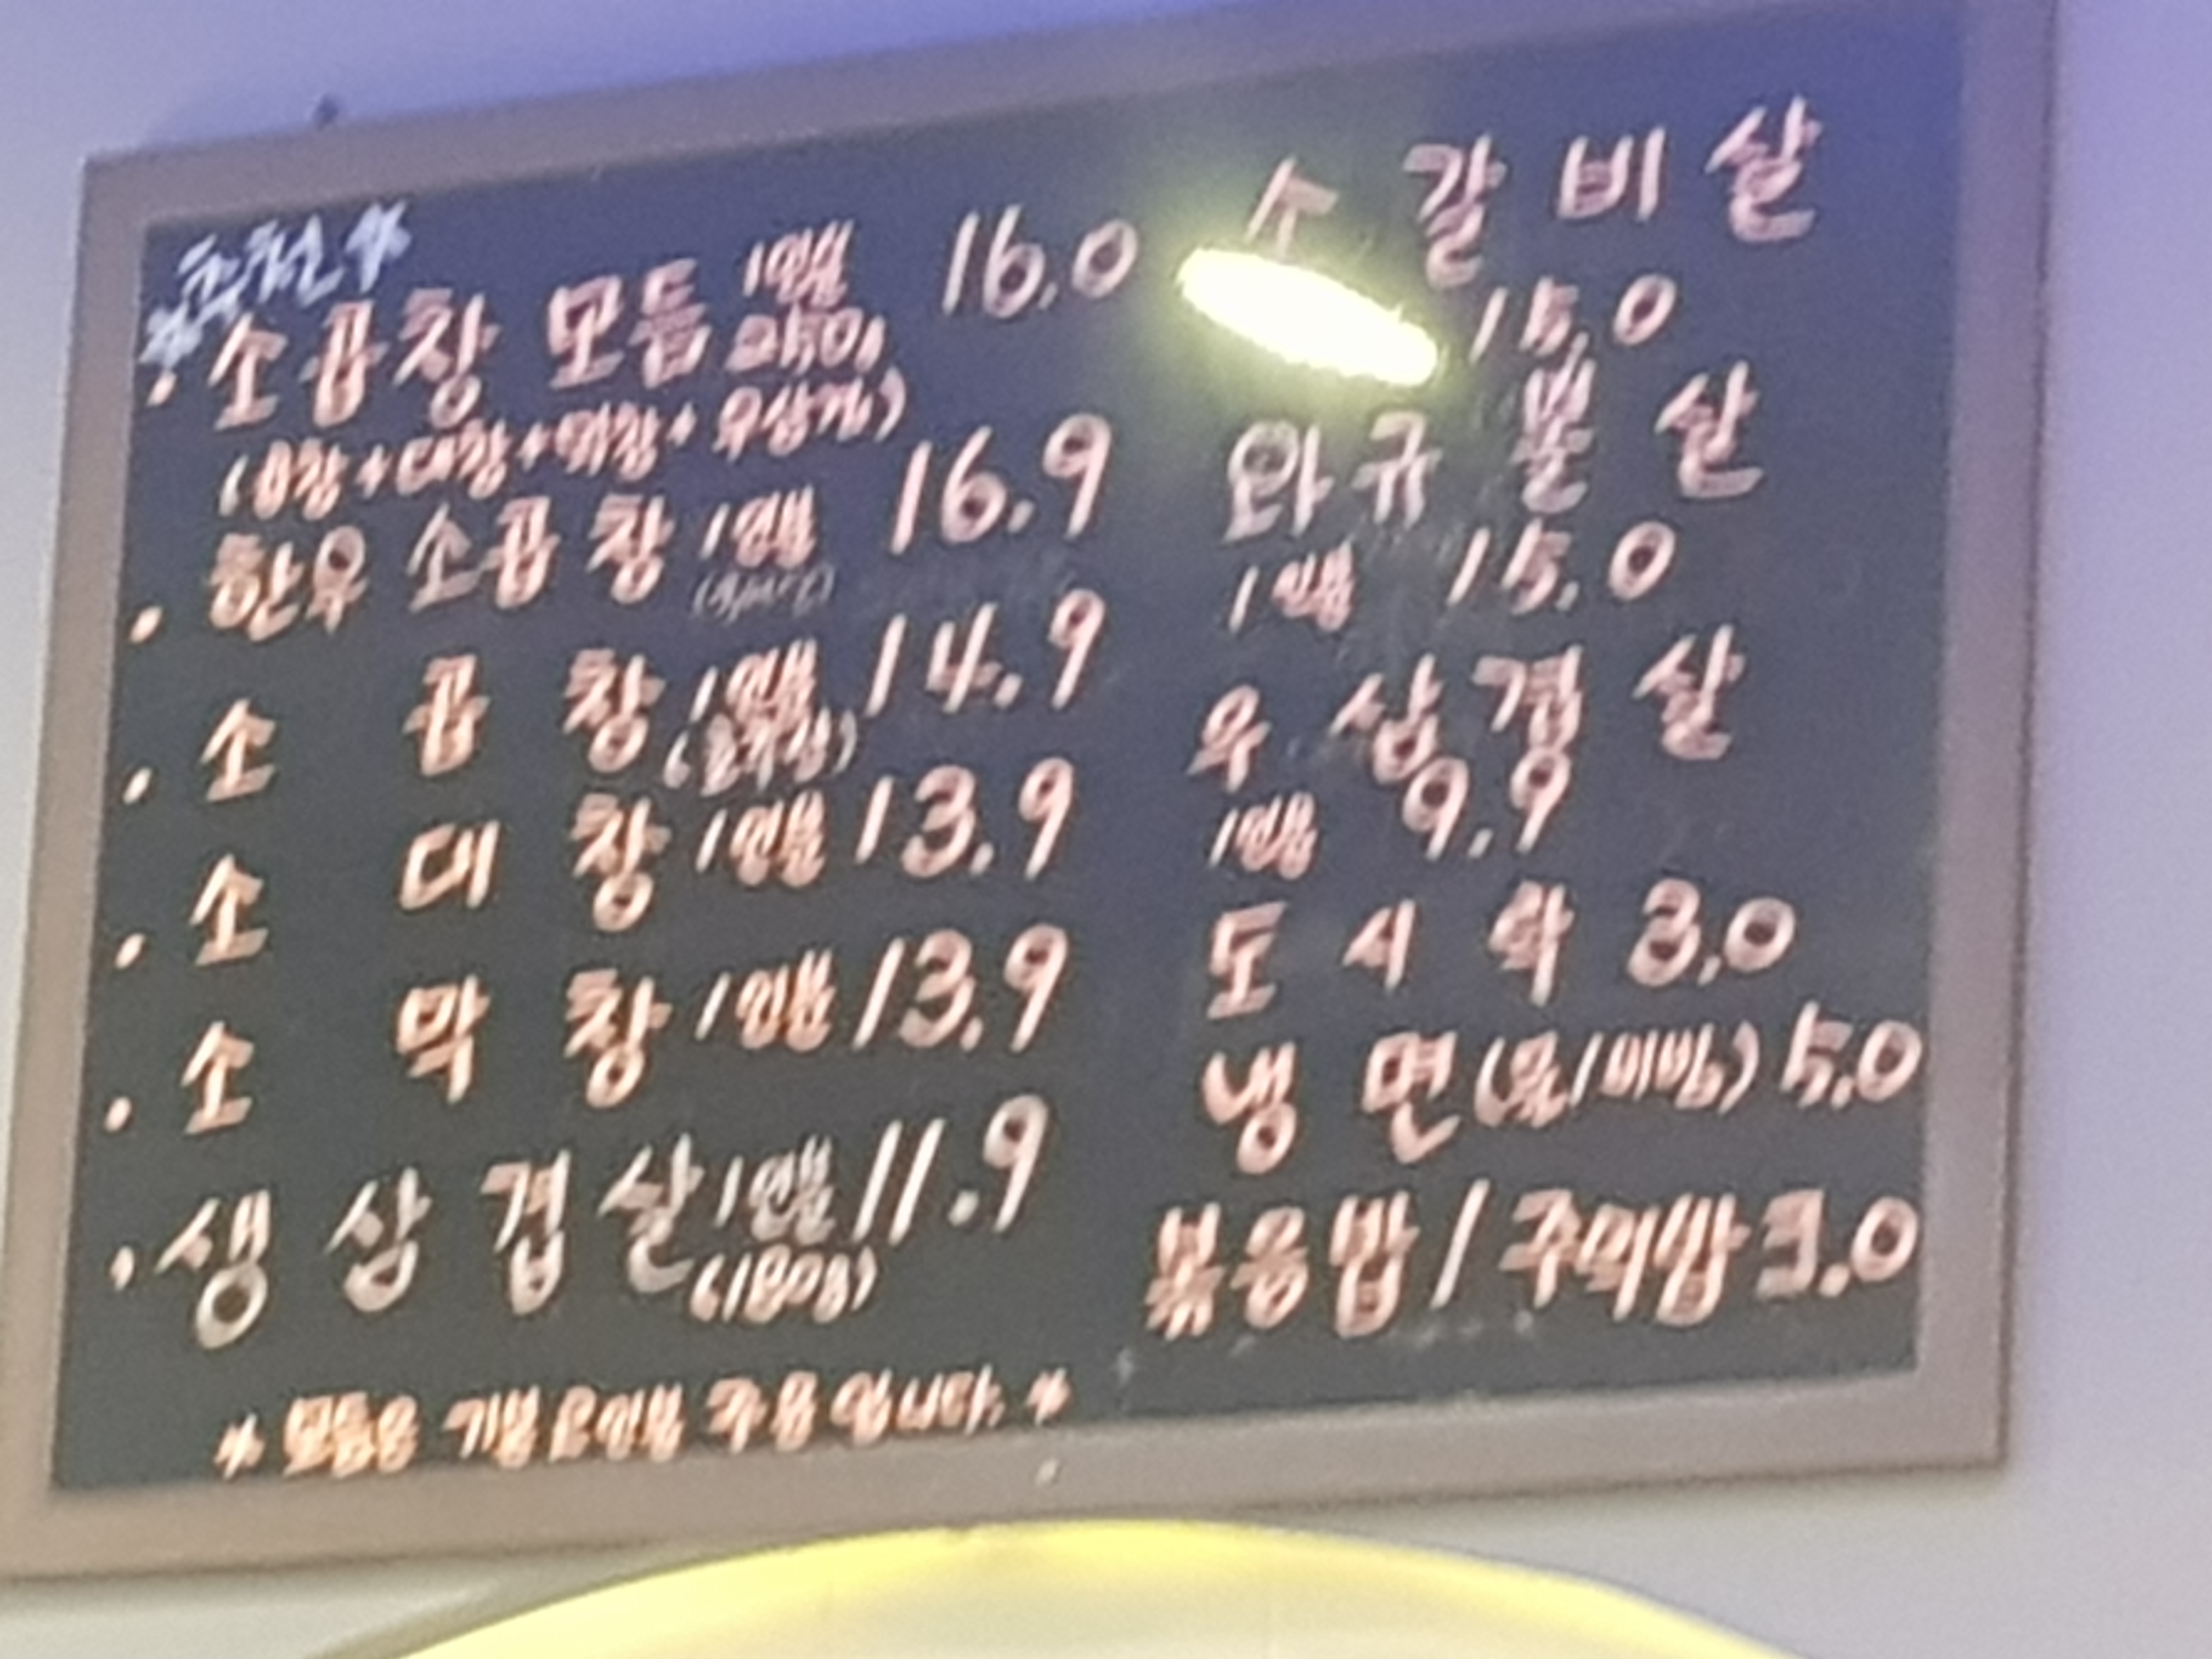 *추천*
· 소곱창 모듬 1인분 16.0
(곱창+대창+막창+우삼겹)
· 한우 소곱창 1인분 16.9
· 소 곱 창 1인분 14.9
· 소 대 창 1인분 13.9
· 소 막 창 1인분 13.9
· 생 삼 겹 살 1인분 11.9
(180g)
* 모듬은 기본 2인분 주문 입니다. *
소 갈 비 살
15.0
와 규 살
1인분 15.0
우 삼 겹 살
1인분 9.9
도 시 락 3.0
냉 면 (물/비빔) 5.0
볶음밥 / 주먹밥 3.0